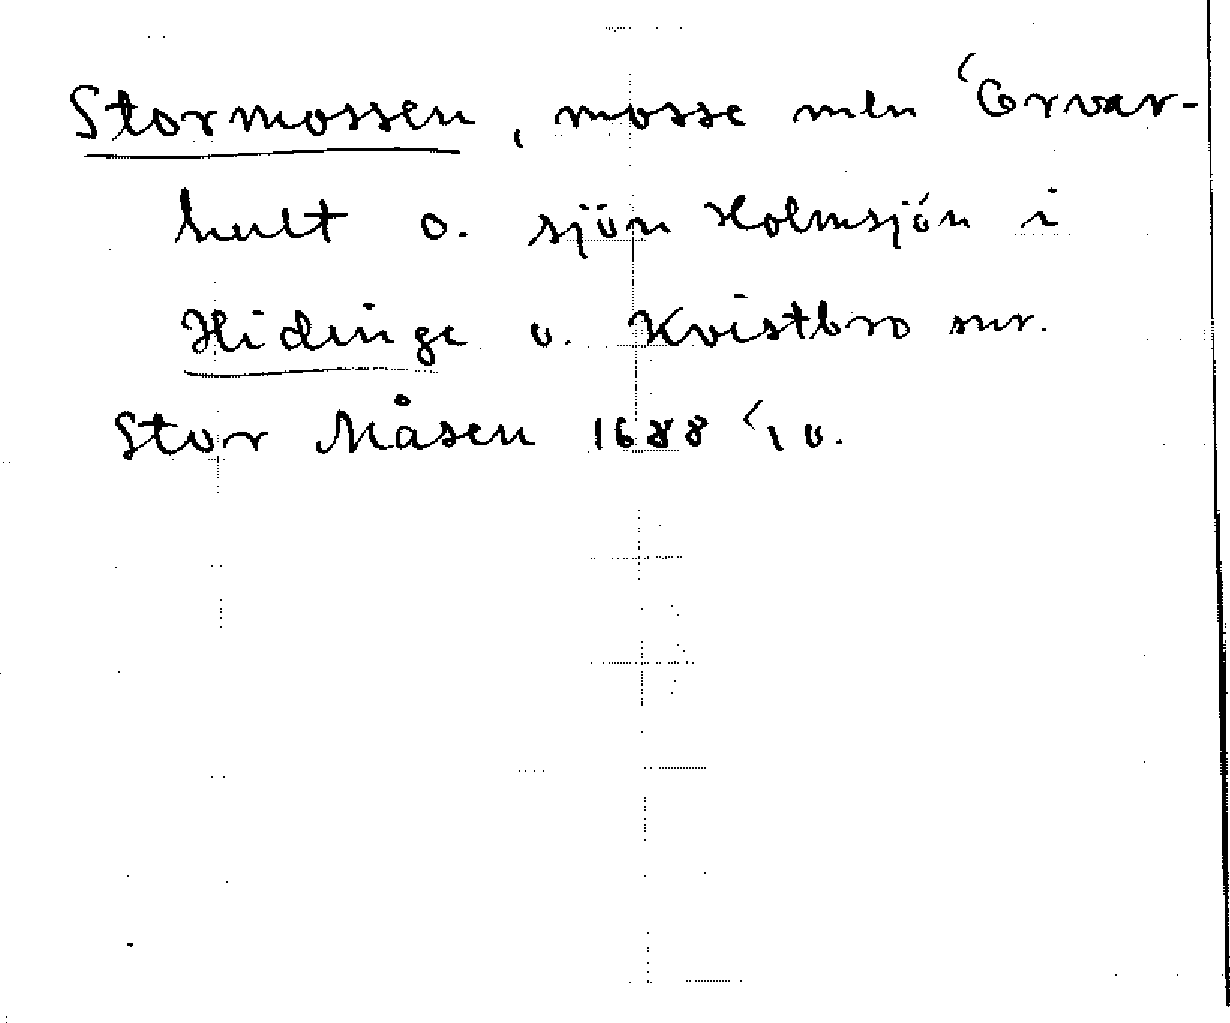 Stormossen, mosse mln Örvar-
hult o. sjön Holmsjön i
Hidinge o. Kvistbro snr.
Stor Måsen 1688 ⁄10.